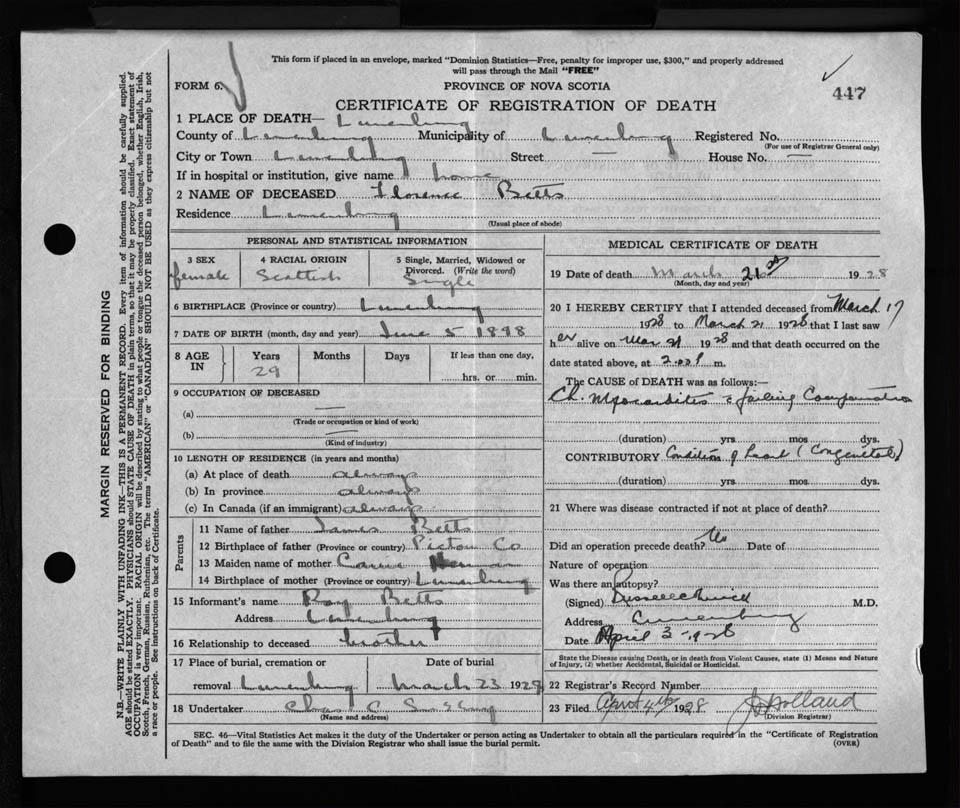 This form if placed in an envelope, marked "Dominion Statistics—Free, penalty for improper use, $300," and properly addressed
will pass through the Mail "FREE"
FORM 6.
PROVINCE OF NOVA SCOTIA
447
CERTIFICATE OF REGISTRATION OF DEATH
1 PLACE OF DEATH— Lunenburg
County of Lunenburg Municipality of Lunenburg Registered No.
(For use of Registrar General only)
City or Town Lunenburg Street — House No. —
If in hospital or institution, give name home
2 NAME OF DECEASED Florence Betts
Residence Lunenburg
(Usual place of abode)
PERSONAL AND STATISTICAL INFORMATION
3 SEX 4 RACIAL ORIGIN 5 Single, Married, Widowed or
Divorced. (Write the word)
female Scottish Single
6 BIRTHPLACE (Province or country) Lunenburg
7 DATE OF BIRTH (month, day and year) June 5 1898
8 AGE IN Years Months Days If less than one day,
29 hrs. or min.
9 OCCUPATION OF DECEASED
(a) —
(Trade or occupation or kind of work)
(b) —
(Kind of industry)
10 LENGTH OF RESIDENCE (in years and months)
(a) At place of death always
(b) In province always
(c) In Canada (if an immigrant) always
Parents
11 Name of father James Betts
12 Birthplace of father (Province or country) Pictou Co
13 Maiden name of mother Carrie
14 Birthplace of mother (Province or country) Lunenburg
15 Informant's name Roy Betts
Address Lunenburg
16 Relationship to deceased brother
17 Place of burial, cremation or Date of burial
removal Lunenburg March 23 1928
18 Undertaker Chas C
(Name and address)
MEDICAL CERTIFICATE OF DEATH
19 Date of death March 21st 1928
(Month, day and year)
20 I HEREBY CERTIFY that I attended deceased from March 17
1928 to March 21 1928 that I last saw
her alive on Mar 21 1928 and that death occurred on the
date stated above, at 2.00 P. m.
The CAUSE of DEATH was as follows:—
Ch. Myocarditis & failing Compensation
(duration) yrs mos dys.
CONTRIBUTORY Condition of heart (Congenital)
(duration) yrs. mos. dys.
21 Where was disease contracted if not at place of death?
Did an operation precede death? No Date of
Nature of operation
Was there an autopsy?
(Signed) M.D.
Address Lunenburg
Date April 3 - 1928
State the Disease causing Death, or in death from Violent Causes, state (1) Means and Nature
of Injury, (2) whether Accidental, Suicidal or Homicidal.
22 Registrar's Record Number
23 Filed April 4th 1928 Holland
(Division Registrar)
SEC. 46—Vital Statistics Act makes it the duty of the Undertaker or person acting as Undertaker to obtain all the particulars required in the "Certificate of Registration
of Death" and to file the same with the Division Registrar who shall issue the burial permit.
(OVER)
MARGIN RESERVED FOR BINDING
N.B.—WRITE PLAINLY WITH UNFADING INK—THIS IS A PERMANENT RECORD. Every item of information should be carefully supplied.
AGE should be stated EXACTLY. PHYSICIANS should STATE CAUSE OF DEATH in plain terms, so that it may be properly classified. Exact statement of
OCCUPATION is very important. RACIAL ORIGIN will be described by stating to what people or tongue the deceased person belonged, whether English, Irish,
Scotch, French, German, Russian, Ruthenian, etc. The terms "AMERICAN" or "CANADIAN" SHOULD NOT BE USED as they express citizenship but not
a race or people. See instructions on back of Certificate.